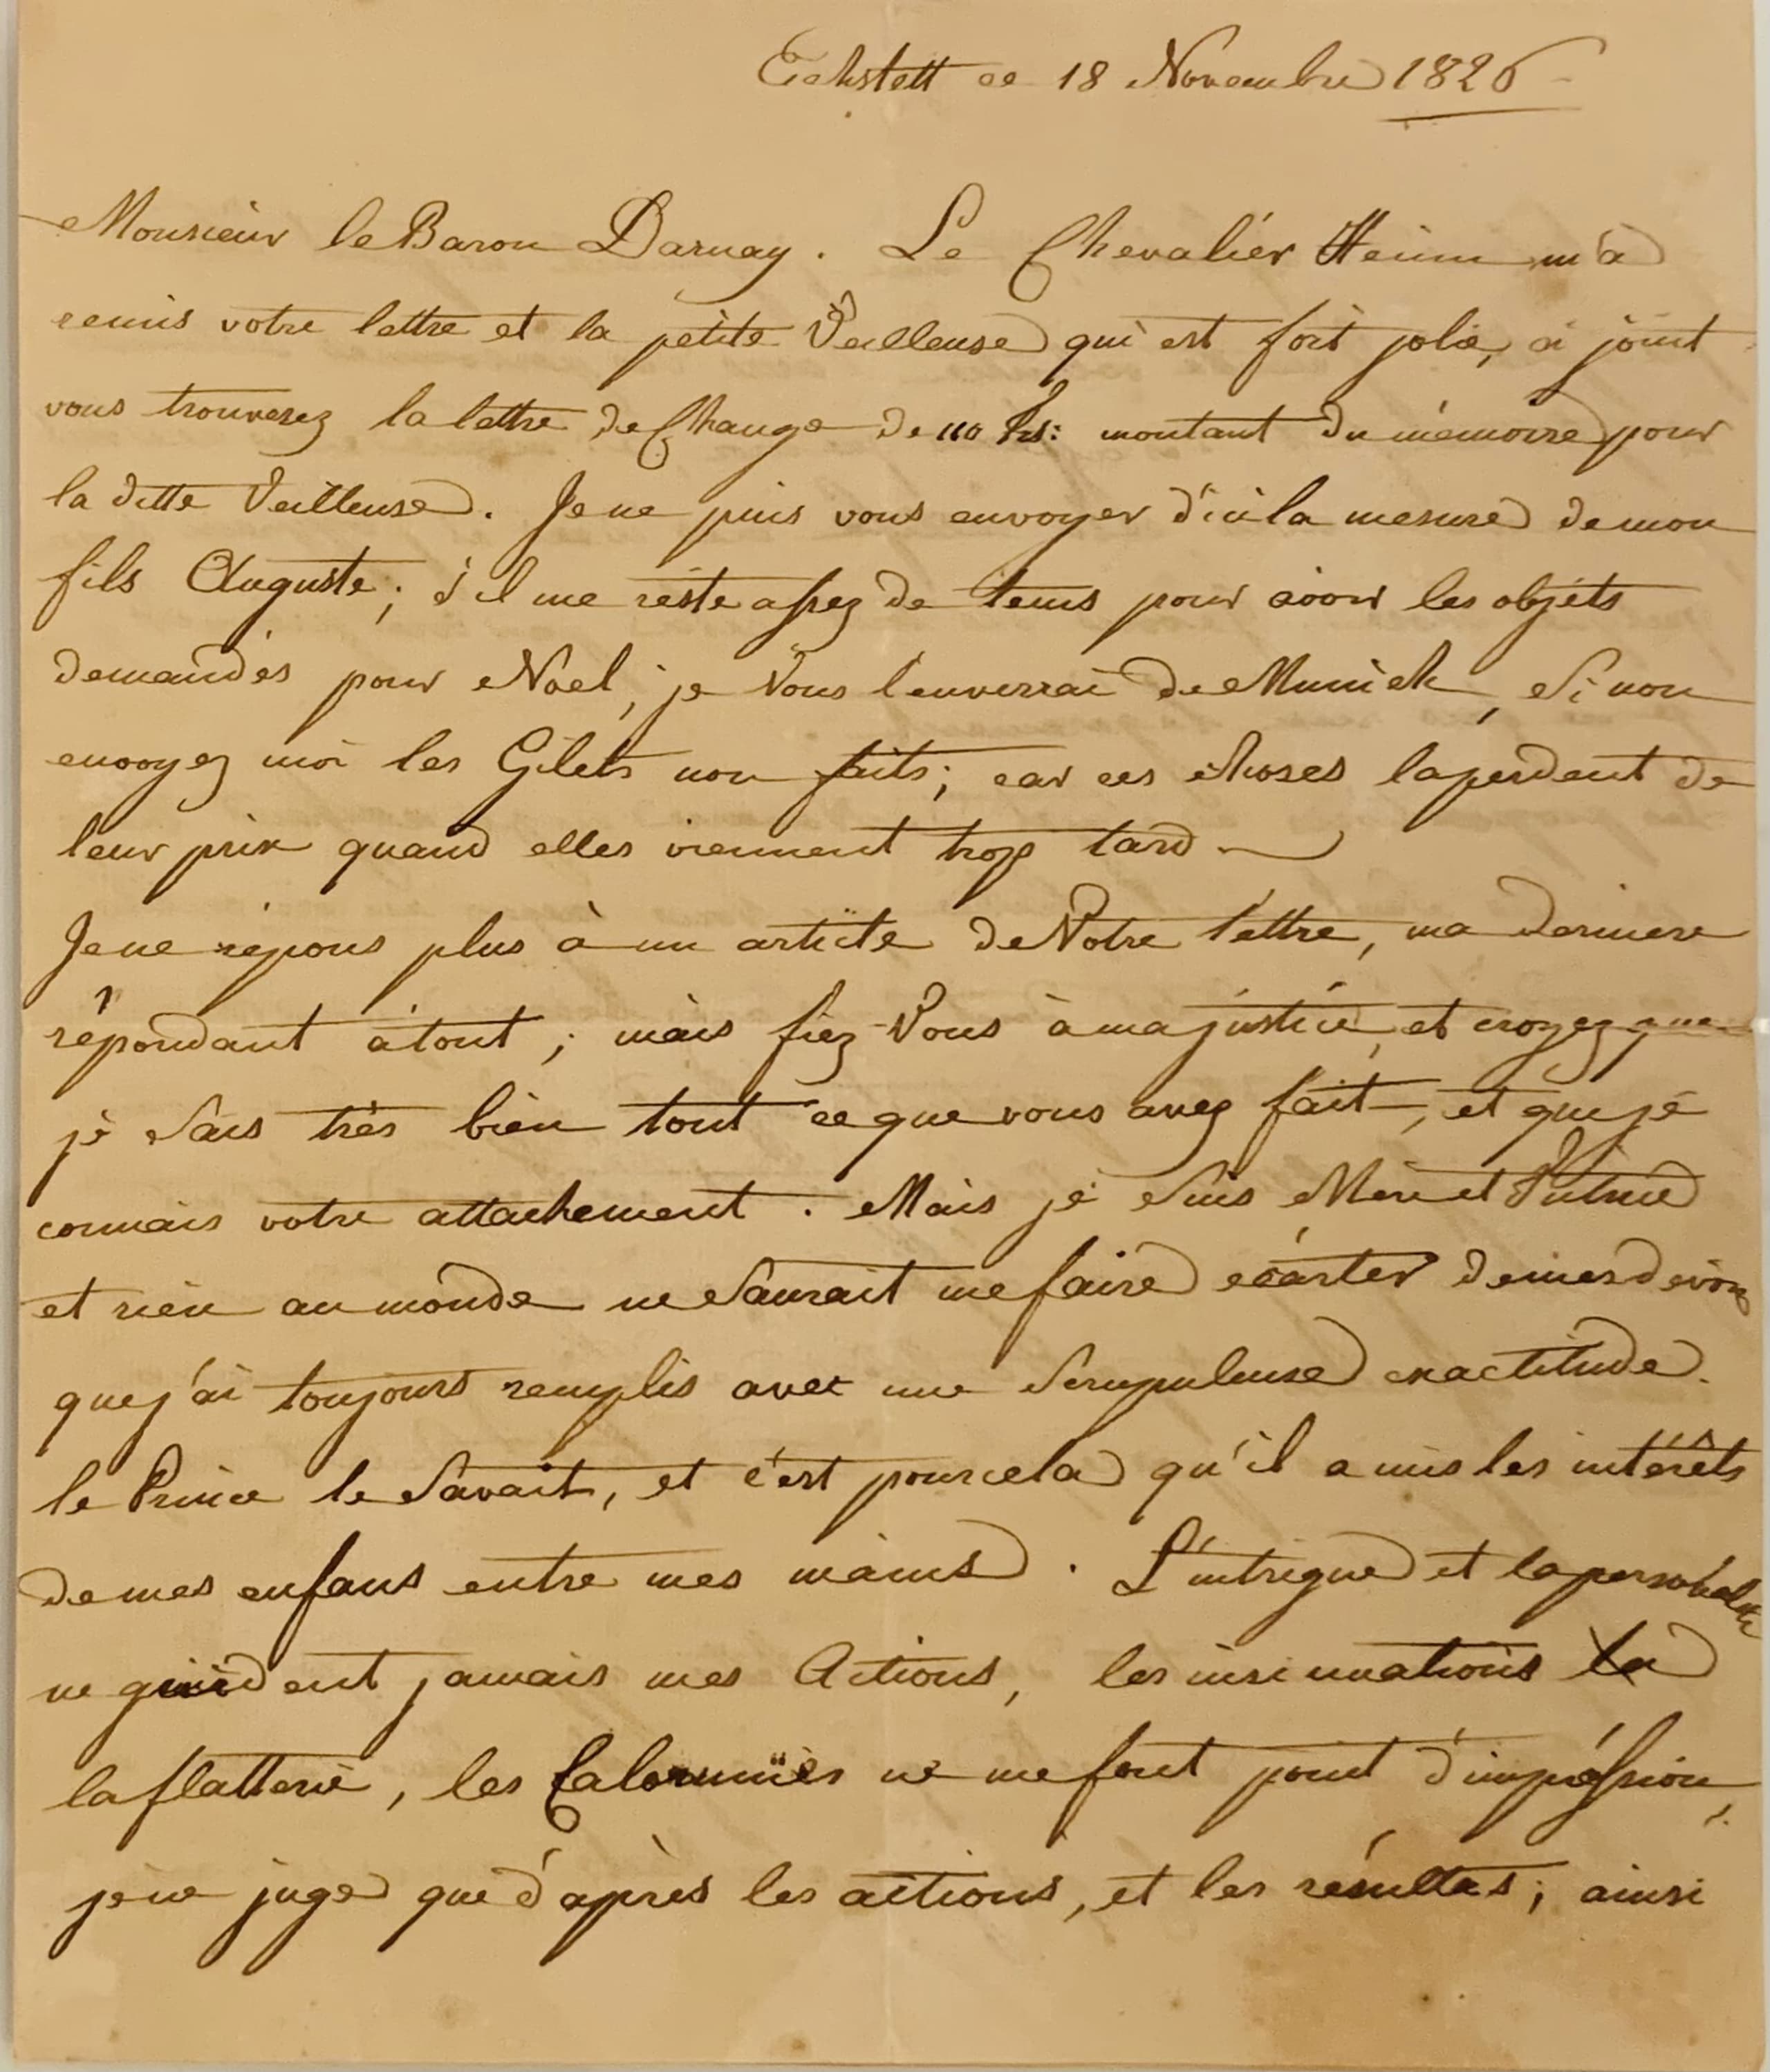 Eichstett ce 18 Novembre 1826
Monsieur le Baron Darnay. Le Chevalier Heim m'a
remis votre lettre et la petite Veilleuse qui est fort jolie, ci joint
vous trouverez la lettre de Change de 110 frs: montant du mémoire pour
la ditte Veilleuse. Je ne puis vous envoyer d'ici la mesure de mon
fils Auguste; s'il me reste assez de tems pour avoir les objets
demandés pour Noel, je Vous l'enverrai de Munich, Si non
envoyez moi les Gilets non faits; car ces choses la perdent de
leur prix quand elles viennent trop tard.
Je ne répons plus à un article de Votre lettre, ma derniere
répondant à tout; mais fiez-Vous à ma justice, et croyez que
je Sais très bien tout ce que vous avez fait, et que je
connais votre attachement. Mais je Suis Mère et Tutrice
et rien au monde ne Saurait me faire écarter de mes devoirs
que j'ai toujours remplis avec une Scrupuleuse exactitude.
le Prince le Savait, et c'est pour cela qu'il a mis les intérêts
de mes enfans entre mes mains. L'intrigue et la personalité
ne guident jamais mes Actions, les insinuations la
la flatterie, les Calomnies ne me font point d'impréssion,
je ne juge que d'après les actions, et les résultas; ainsi